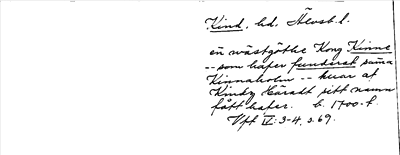 Kind, hd, Älvsb. l.
en wästgöthe Kong Kinne
-- som hafer funderat samma
Kinnaholm -- hwar af
Kindz Häradt sitt namn
fått hafer. b. 1700-t.
Vft IV: 3-4, s. 69.